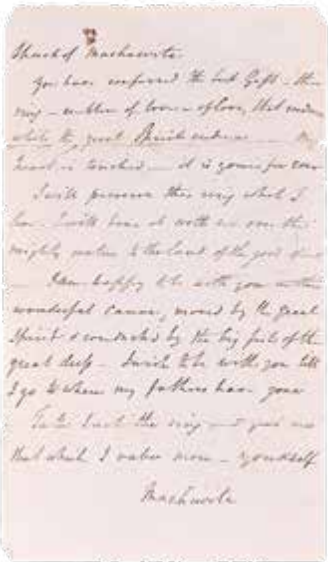 Speech of Machawita
You have conferred the best Gift – the
ring – emblem of love – of love, that endures
while the great Spirit endures – My
heart is touched – it is yours for ever
I will preserve this ring while I
live I will bear it with me over the
mighty waters to the land of the good
– I am happy to be with you in this
wonderful canoe, moved by the great
Spirit & conducted by the big of the
great deep – I wish to be with you till
I go to where my fathers have gone
Take back the ring – and give me
that which I value more – yourself